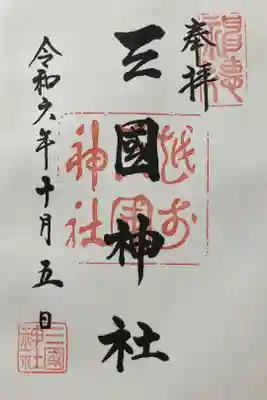 奉拝
三國神社
越前
三國
神社
令和六年十月五日
三國
神社